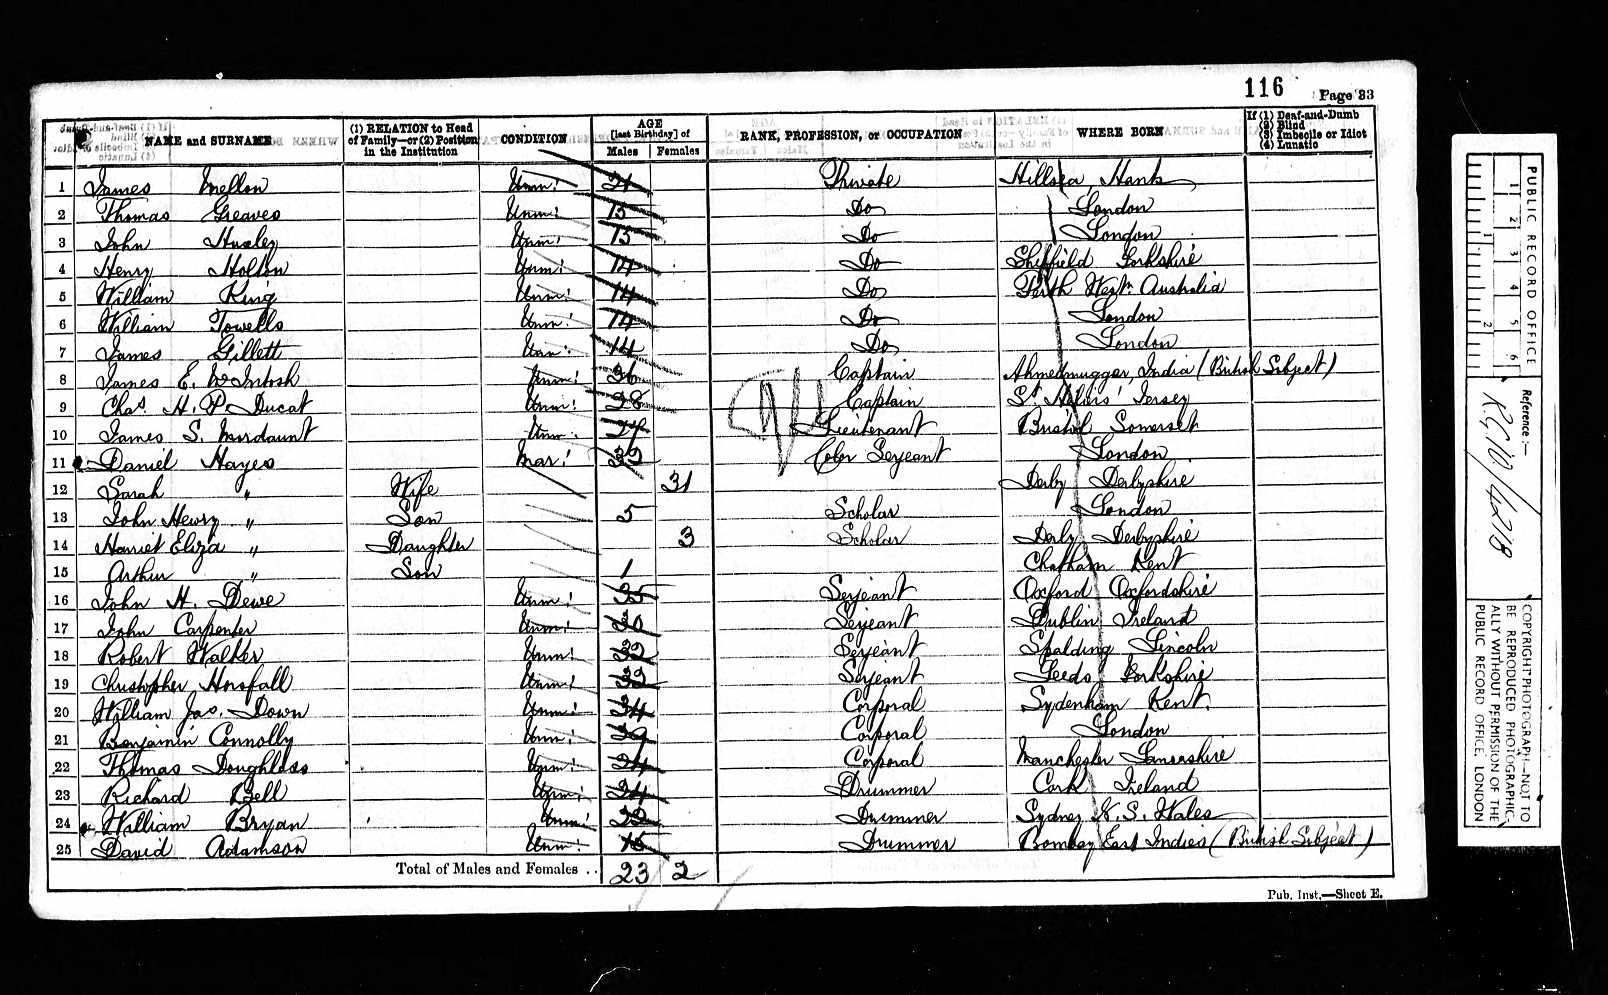 116
Page 33
NAME and SURNAME
(1) RELATION to Head of Family—or (2) Position in the Institution
CONDITION
AGE [last Birthday] of
Males
Females
RANK, PROFESSION, or OCCUPATION
WHERE BORN
If (1) Deaf-and-Dumb
(2) Blind
(3) Imbecile or Idiot
(4) Lunatic
1 James Mellon Unm: 21 Private Hillsea, Hants
2 Thomas Greaves Unm: 15 Do London
3 John Huxley Unm: 15 Do London
4 Henry Molton Unm: 14 Do Sheffield Yorkshire
5 William King Unm: 14 Do Perth West: Australia
6 William Towells Unm: 14 Do London
7 James Gillett Unm: 14 Do London
8 James E. McIntosh Unm: 36 Captain Ahmednuggar, India (British Subject)
9 Chas. H. P. Ducat Unm: 28 Captain St Heliers Jersey
10 James S. Mordaunt Unm: 27 Lieutenant Bristol Somerset
11 Daniel Hayes Mar: 39 Color Serjeant London
12 Sarah " Wife 31 Derby Derbyshire
13 John Henry " Son 5 Scholar London
14 Harriet Eliza " Daughter 3 Scholar Derby Derbyshire
15 Arthur " Son 1 Chatham Kent
16 John H. Dewe Unm: 35 Serjeant Oxford Oxfordshire
17 John Carpenter Unm: 30 Serjeant Dublin Ireland
18 Robert Walker Unm: 32 Serjeant Spalding Lincoln
19 Christopher Horsfall Unm: 32 Serjeant Leeds Yorkshire
20 William Jas. Down Unm: 34 Corporal Sydenham Kent.
21 Benjamin Connolly Unm: 29 Corporal London
22 Thomas Doughlass Unm: 24 Corporal Manchester Lancashire
23 Richard Bell Unm: 24 Drummer Cork Ireland
24 William Bryan Unm: 22 Drummer Sydney N. S. Wales
25 David Adamson Unm: 15 Drummer Bombay East Indies (British Subject)
Total of Males and Females .. 23 2
Pub. Inst.—Sheet E.
PUBLIC RECORD OFFICE
1 2 3 4 5 6
1 2
Reference:—
R.G. 10/4218
COPYRIGHT PHOTOGRAPH—NOT TO
BE REPRODUCED PHOTOGRAPHIC-
ALLY WITHOUT PERMISSION OF THE
PUBLIC RECORD OFFICE, LONDON